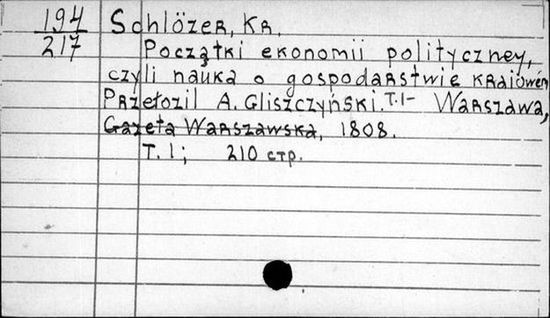 194 Schlözer, Kr.
217 Początki ekonomii polityczney,
czyli nauka o gospodarstwie kraiowém
Przełozil A. Gliszczyński. T. 1- Warszawa,
Gazeta Warszawska, 1808.
T. 1; 210 стр.